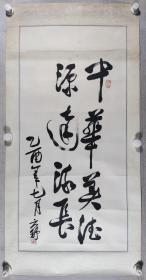 中華美德
源遠流長
乙酉年七月